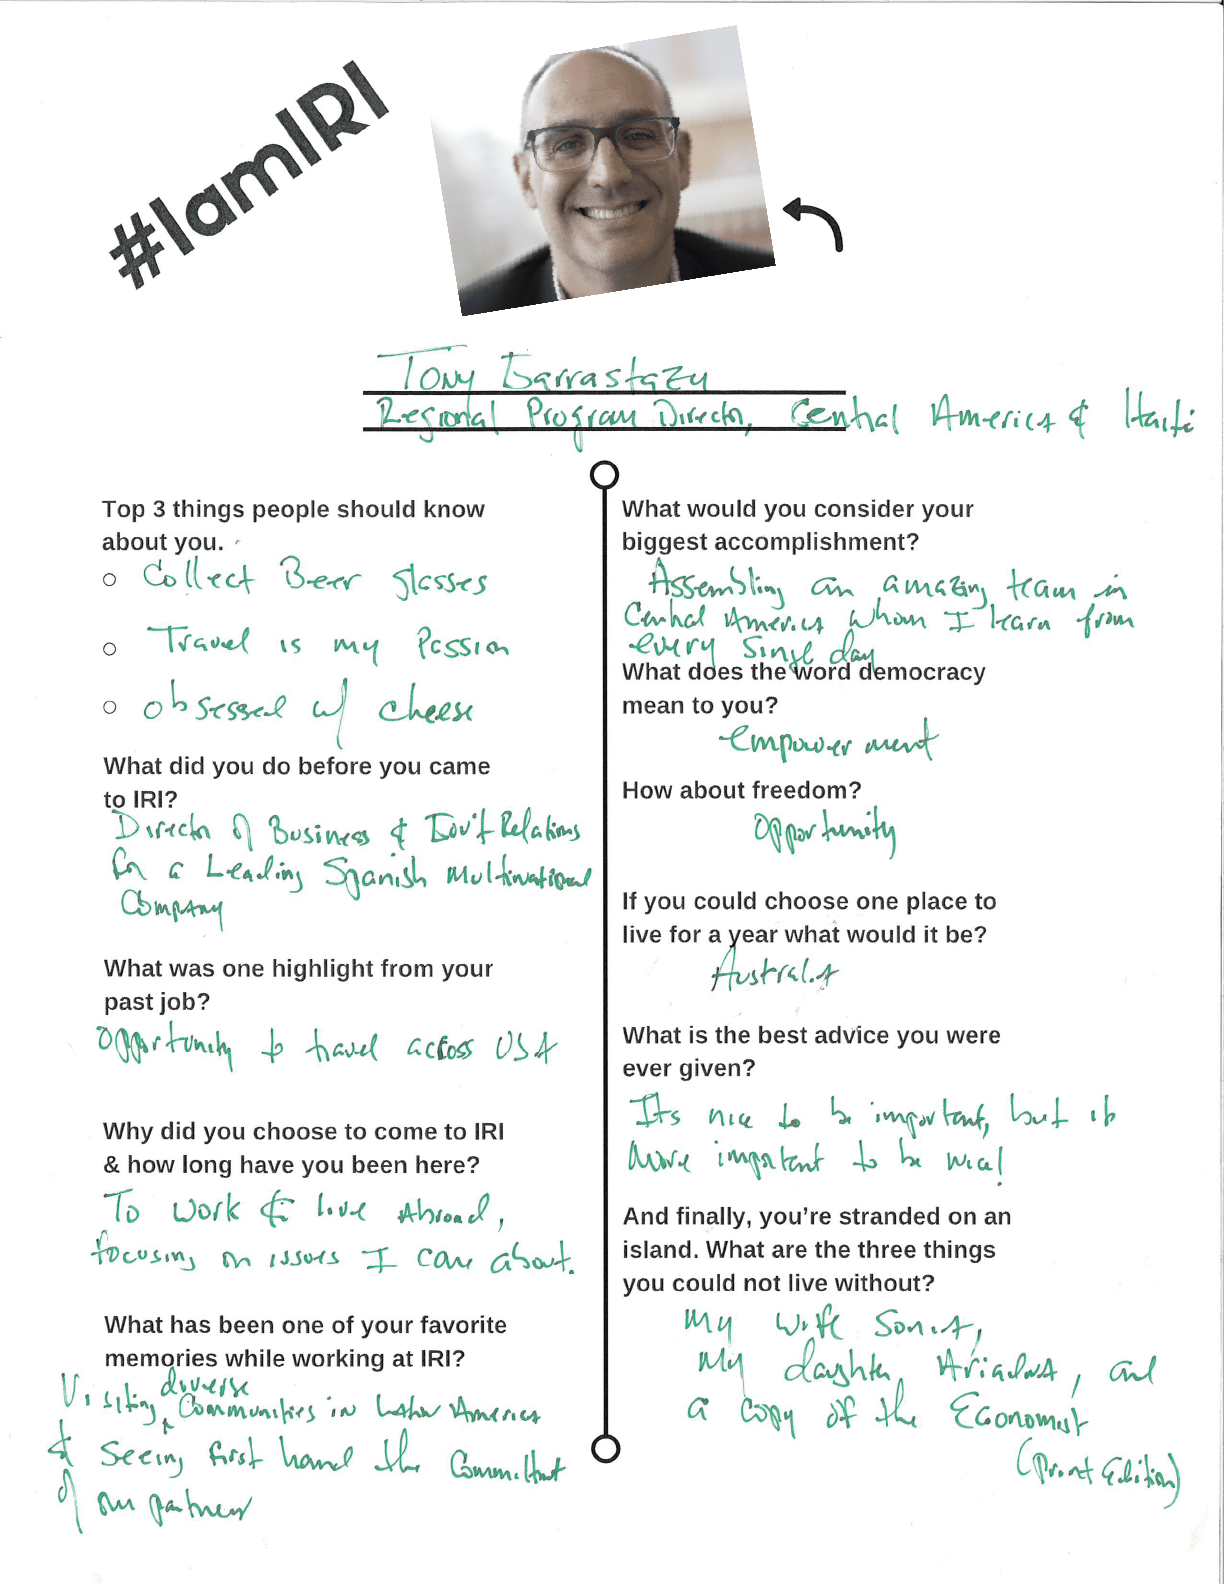 #IamIRI
Tony Garrastazu
Regional Program Director, Central America & Haiti
Top 3 things people should know
about you.
Collect Beer glasses
Travel is my Passion
obsessed w/ cheese
What did you do before you came
to IRI?
Director of Business & Gov't Relations
for a Leading Spanish Multinational
Company
What was one highlight from your
past job?
Opportunity to travel across USA
Why did you choose to come to IRI
& how long have you been here?
To work & live Abroad,
focusing on issues I care about.
What has been one of your favorite
memories while working at IRI?
Visiting diverse communities in Latin America
& Seeing first hand the Commitment
of our partners
What would you consider your
biggest accomplishment?
Assembling an amazing team in
Central America whom I learn from
every single day
What does the word democracy
mean to you?
empowerment
How about freedom?
Opportunity
If you could choose one place to
live for a year what would it be?
Australia
What is the best advice you were
ever given?
Its nice to be important, but it is
more important to be nice!
And finally, you’re stranded on an
island. What are the three things
you could not live without?
My wife Sonia,
My daughter Ariadna, and
a copy of the Economist
(Print Edition)